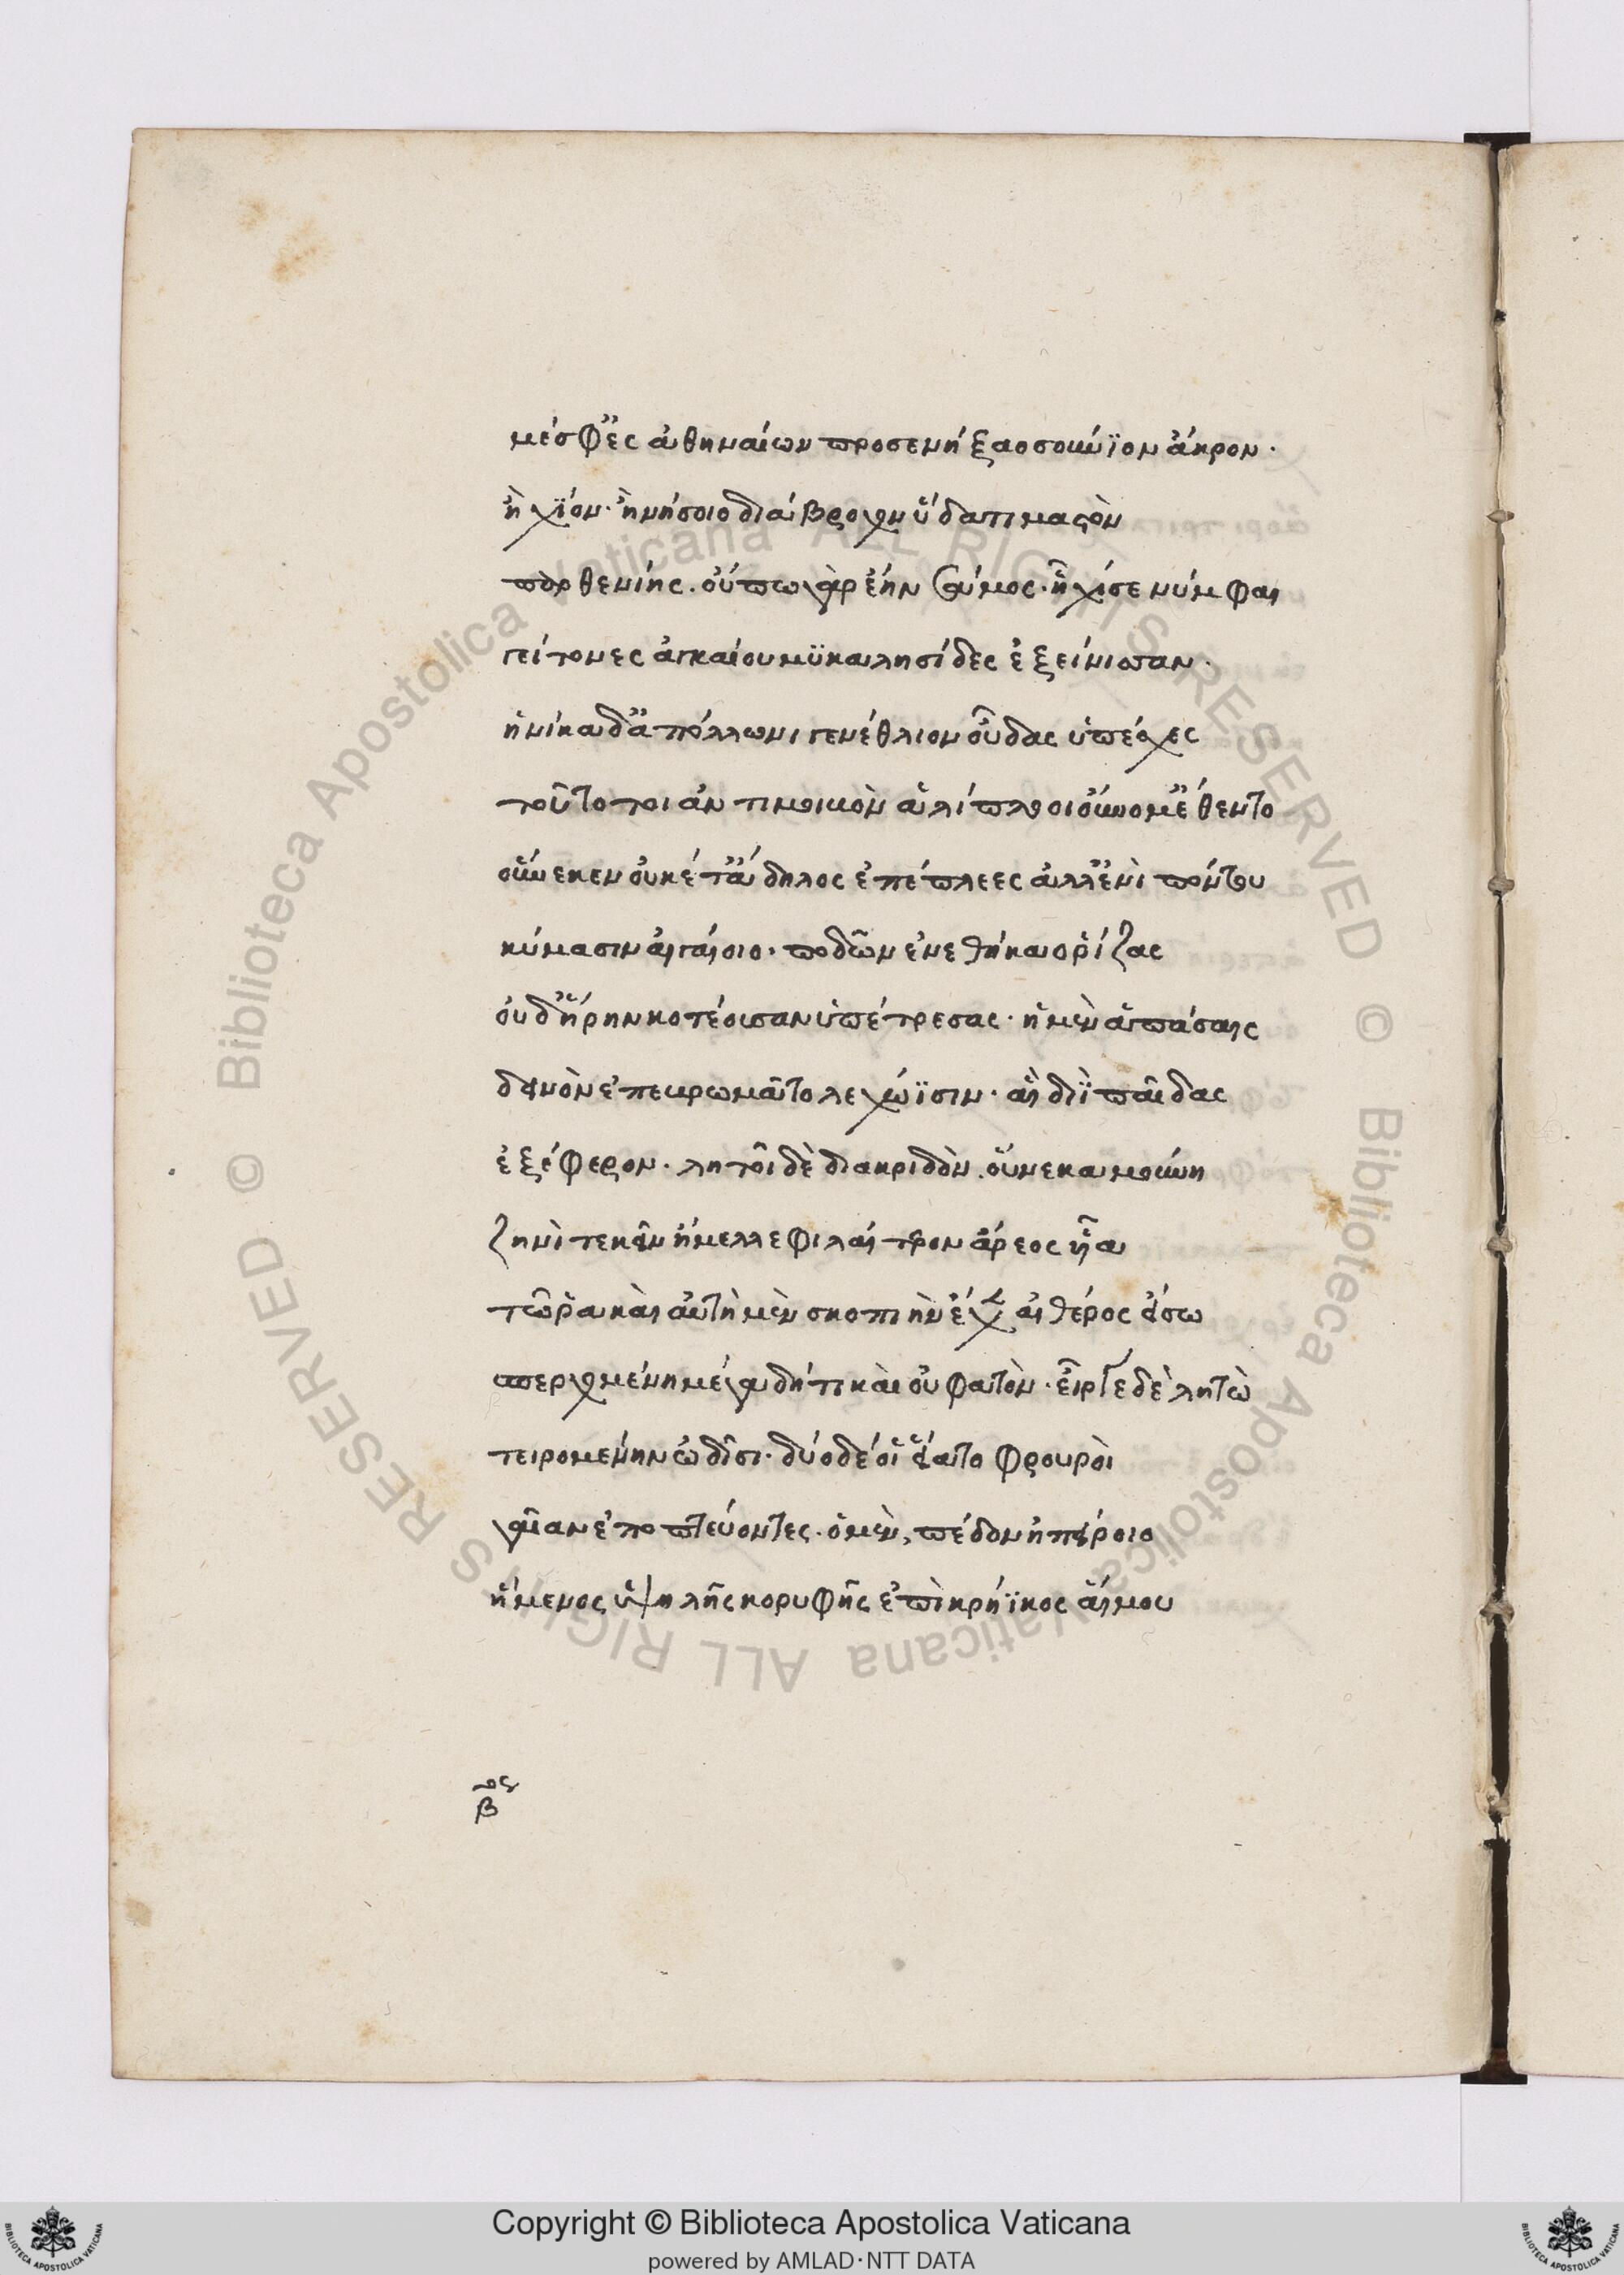 μέσφ' ἐς ἀθηναίων προσενήξαο σούνϊον ἄκρον·
ἢ χίον· ἢ νήσοιο διάβροχον ὕδατι μαστὸν
παρθενίης. οὔπω γὰρ ἔην σάμος· ἧχί σε νύμφαι
γείτονες ἀγκαίου μϋκαλησίδες ἐξείνισσαν·
ἡνίκα δ' ἀπόλλωνι γενέθλιον οὖδας ὑπέσχες
τοῦτό τοι ἀντημοιβὸν ἁλίπλοοι οὔνομ' ἔθεντο
οὕνεκεν οὐκέτ' ἄδηλος ἐπέπλεες ἀλλ' ἐνὶ πόντου
κύμασιν αἰγαίοιο· ποδῶν ἐνεθήκαο ῥίζας
οὐδ' ἥρην κοτέουσαν ὑπέτρεσας· ἡ μὲν ἁπάσαις
δεινὸν ἐπεβρωμᾶτο λεχώϊσιν· αἳ διῒ παῖδας
ἐξέφερον· λητοῖ δὲ διακριδὸν. οὕνεκα μούνη
ζηνὶ τεκεῖν ἤμελλε φιλαίτερον ἄρεος ἧα
τῶ ῥα καὶ αὐτὴ μὲν σκοπιὴν ἔχεν αἰθέρος εἴσω
σπερχομένη μέγα δή τι καὶ οὐ φατὸν· εἶργε δὲ λητὼ
τειρομένην ὠδῖσι· δύο δέ οἱ εἵατο φρουροὶ
γαῖαν ἐποπτεύοντες· ὁ μὲν, πέδον ἠπείροιο
ἥμενος ὑψηλῆς κορυφῆς ἐπὶ κρήϊκος αἵμου
β ος
Copyright © Biblioteca Apostolica Vaticana
powered by AMLAD·NTT DATA
© Biblioteca Apostolica Vaticana ALL RIGHTS RESERVED © Biblioteca Apostolica Vaticana ALL RIGHTS RESERVED